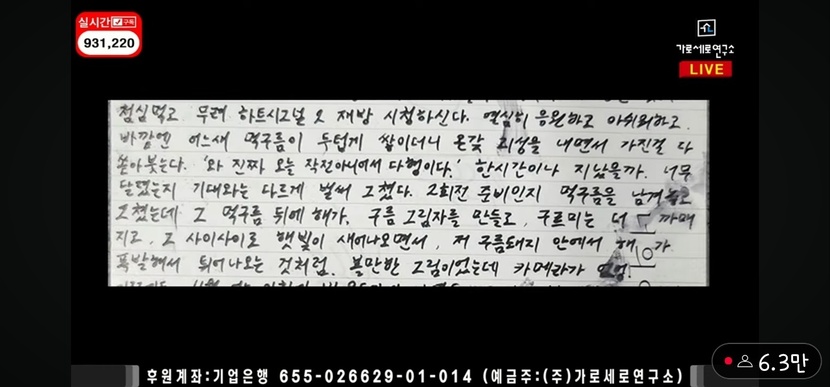 실시간 구독
931,220
가로세로연구소
LIVE
점심먹고 무려 하트시그널 2 재방 시청하신다. 열심히 응원하고 아쉬워하고.
바깥엔 어느새 먹구름이 두텁게 쌓이더니 온갖 괴성을 내면서 가진걸 다
쏟아붓는다. '와 진짜 오늘 작전아니어서 다행이다.' 한시간이나 지났을까. 너무
달렸는지 기대와는 다르게 벌써 그쳤다. 2회전 준비인지 먹구름을 남겨놓고
그쳤는데 그 먹구름 뒤에 해가. 구름 그림자를 만들고, 구르미는 더 까매
지고, 그 사이사이로 햇빛이 새어나오면서, 저 구름돼지 안에서 해가
폭발해서 튀어나오는 것처럼. 볼만한 그림이었는데 카메라가
후원계좌:기업은행 655-026629-01-014 (예금주:(주)가로세로연구소)
6.3만